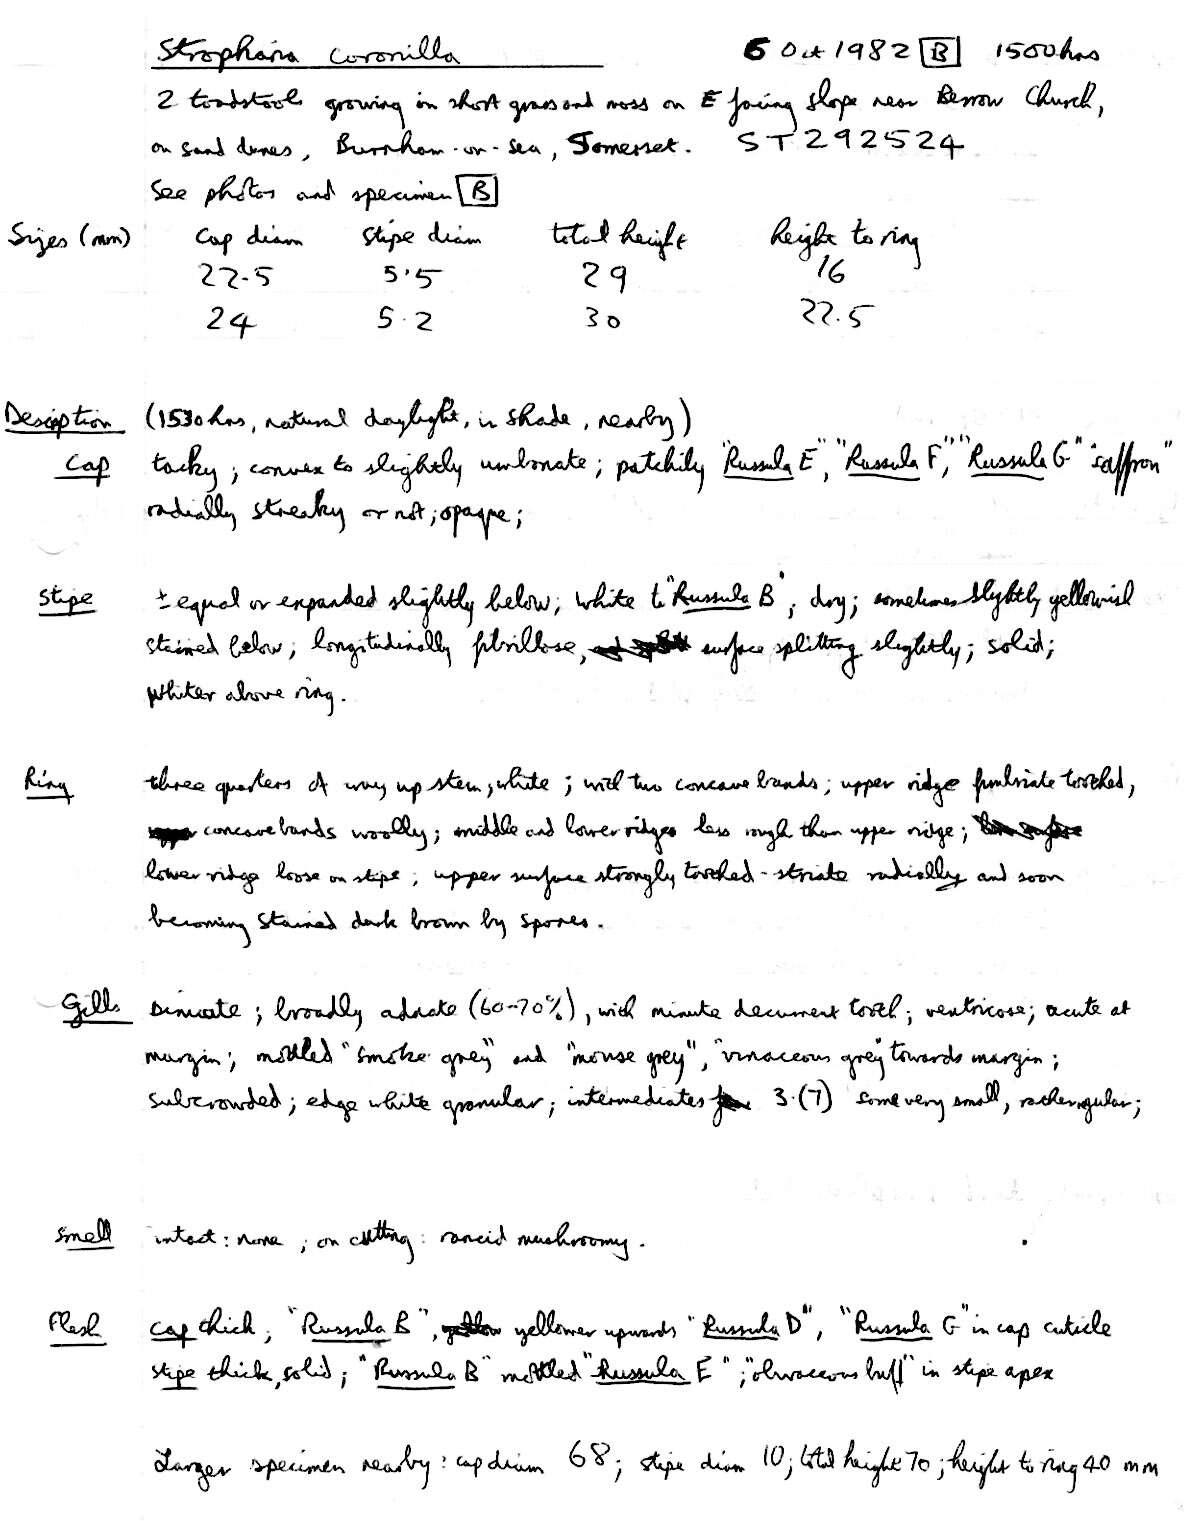 Stropharia coronilla 6 Oct 1982 B 1500hrs
2 toadstools growing in short grass and moss on E facing slope near Berrow Church,
on sand dunes, Burnham-on-Sea, Somerset. ST292524
See photos and specimen B
Sizes (mm) cap diam stipe diam total height height to ring
22.5 5.5 29 16
24 5.2 30 22.5
Description (1530 hrs, natural daylight, in shade, nearby)
Cap tacky; convex to slightly umbonate; patchily "Russula E", "Russula F", "Russula G" "saffron"
radially streaky or not; opaque;
Stipe ± equal or expanded slightly below; white to "Russula B", dry; sometimes slightly yellowish
stained below; longitudinally fibrillose, surface splitting slightly; solid;
whiter above ring.
Ring three quarters of way up stem, white; with two concave bands; upper ridge fimbriate toothed,
concave bands woolly; middle and lower ridges less rough than upper ridge;
lower ridge loose on stipe; upper surface strongly toothed-striate radially and soon
becoming stained dark brown by spores.
Gills ; broadly adnate (60-70%), with minute decurrent tooth; ventricose; acute at
margin; mottled "smoke grey" and "mouse grey", "vinaceous grey" towards margin;
subcrowded; edge white granular; intermediates 3.(7) some very small, rather regular;
Smell intact: none; on cutting: rancid mushroomy.
Flesh cap thick; "Russula B", yellower upwards "Russula D", "Russula G" in cap cuticle
stipe thick, solid; "Russula B" mottled "Russula E"; "olivaceous buff" in stipe apex
Larger specimen nearby: cap diam 68; stipe diam 10; total height 70; height to ring 40 mm